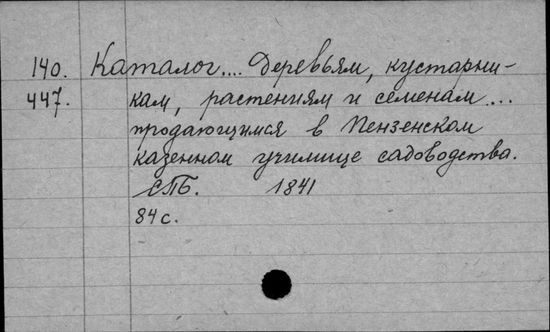 140. Каталог.... Деревьям, кустарни-
447. кам, растениям и семенам...
продающимся в Пензенском
казенном училище садоводства.
СПБ. 1841
84 с.